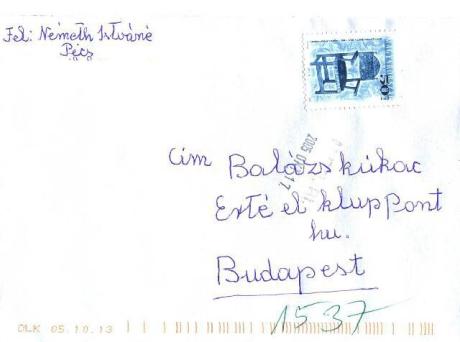 Fel: Németh Istváné
Pécs
50
2005
Cím Balázskukac
Erté el kluppont
hu.
Budapest
1537
OLK 05.10.13